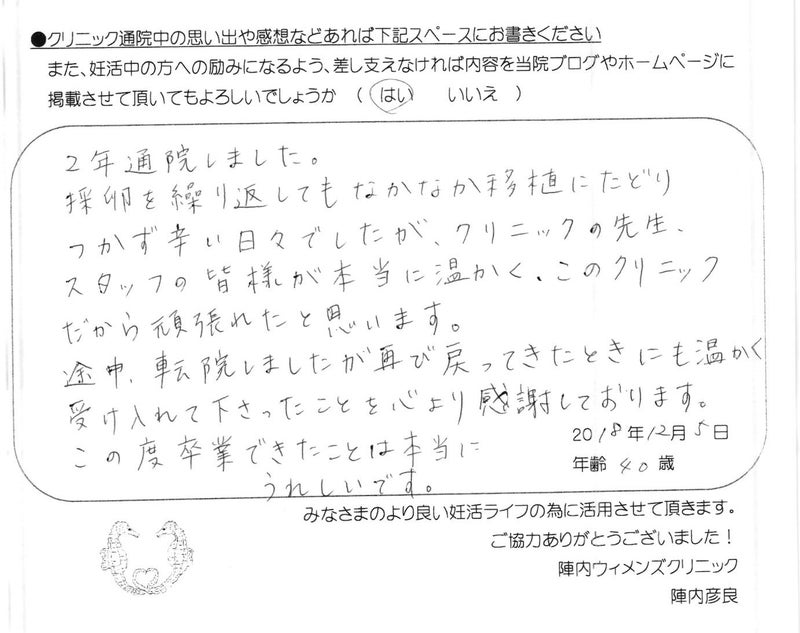 ●クリニック通院中の思い出や感想などあれば下記スペースにお書きください
また、妊活中の方への励みになるよう、差し支えなければ内容を当院ブログやホームページに
掲載させて頂いてもよろしいでしょうか （ はい　　いいえ ）
2年通院しました。
採卵を繰り返してもなかなか移植にたどり
つかず辛い日々でしたが、クリニックの先生、
スタッフの皆様が本当に温かく、このクリニック
だから頑張れたと思います。
途中、転院しましたが再び戻ってきたときにも温かく
受け入れて下さったことを心より感謝しております。
この度卒業できたことは本当に
うれしいです。
2018年12月5日
年齢 40歳
みなさまのより良い妊活ライフの為に活用させて頂きます。
ご協力ありがとうございました！
陣内ウィメンズクリニック
陣内彦良